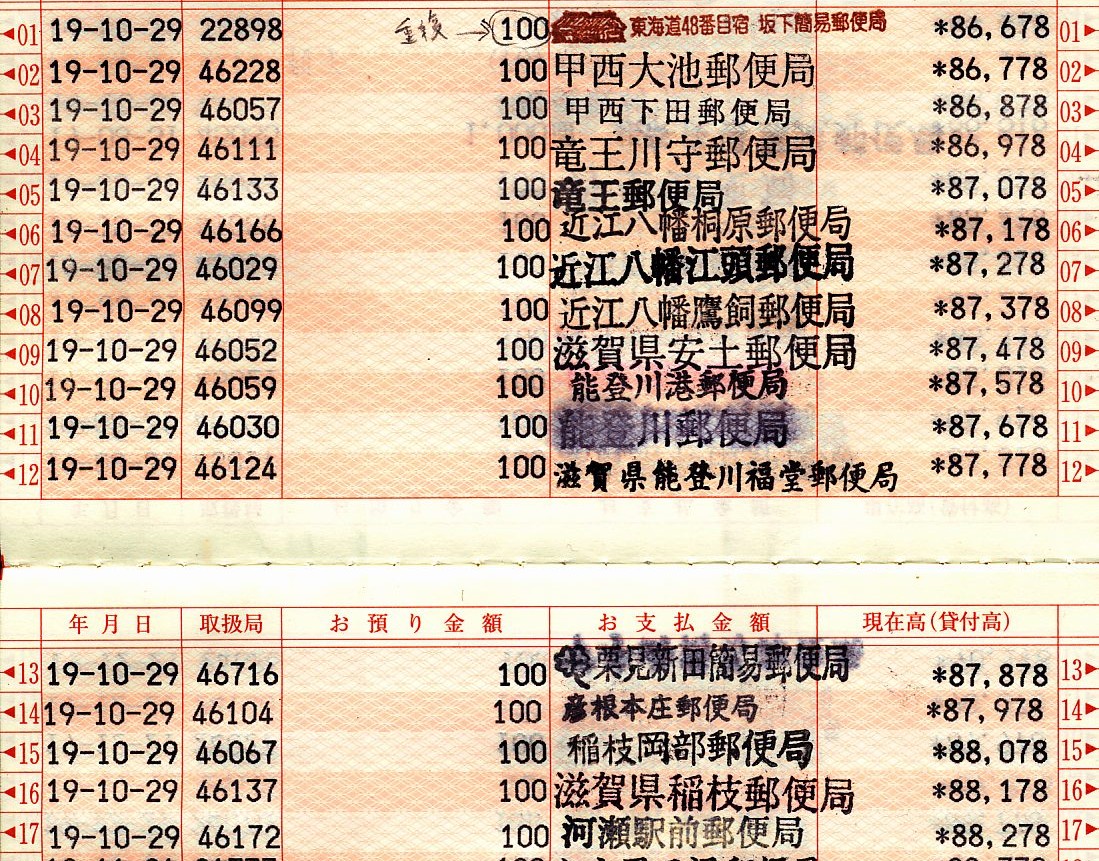 ◄01 19-10-29 22898 重複→100 東海道48番目宿 坂下簡易郵便局 *86,678 01►
◄02 19-10-29 46228 100 甲西大池郵便局 *86,778 02►
◄03 19-10-29 46057 100 甲西下田郵便局 *86,878 03►
◄04 19-10-29 46111 100 竜王川守郵便局 *86,978 04►
◄05 19-10-29 46133 100 竜王郵便局 *87,078 05►
◄06 19-10-29 46166 100 近江八幡桐原郵便局 *87,178 06►
◄07 19-10-29 46029 100 近江八幡江頭郵便局 *87,278 07►
◄08 19-10-29 46099 100 近江八幡鷹飼郵便局 *87,378 08►
◄09 19-10-29 46052 100 滋賀県安土郵便局 *87,478 09►
◄10 19-10-29 46059 100 能登川港郵便局 *87,578 10►
◄11 19-10-29 46030 100 能登川郵便局 *87,678 11►
◄12 19-10-29 46124 100 滋賀県能登川福堂郵便局 *87,778 12►
年月日 取扱局 お預り金額 お支払金額 現在高(貸付高)
◄13 19-10-29 46716 100 栗見新田簡易郵便局 *87,878 13►
◄14 19-10-29 46104 100 彦根本庄郵便局 *87,978 14►
◄15 19-10-29 46067 100 稲枝岡部郵便局 *88,078 15►
◄16 19-10-29 46137 100 滋賀県稲枝郵便局 *88,178 16►
◄17 19-10-29 46172 100 河瀬駅前郵便局 *88,278 17►